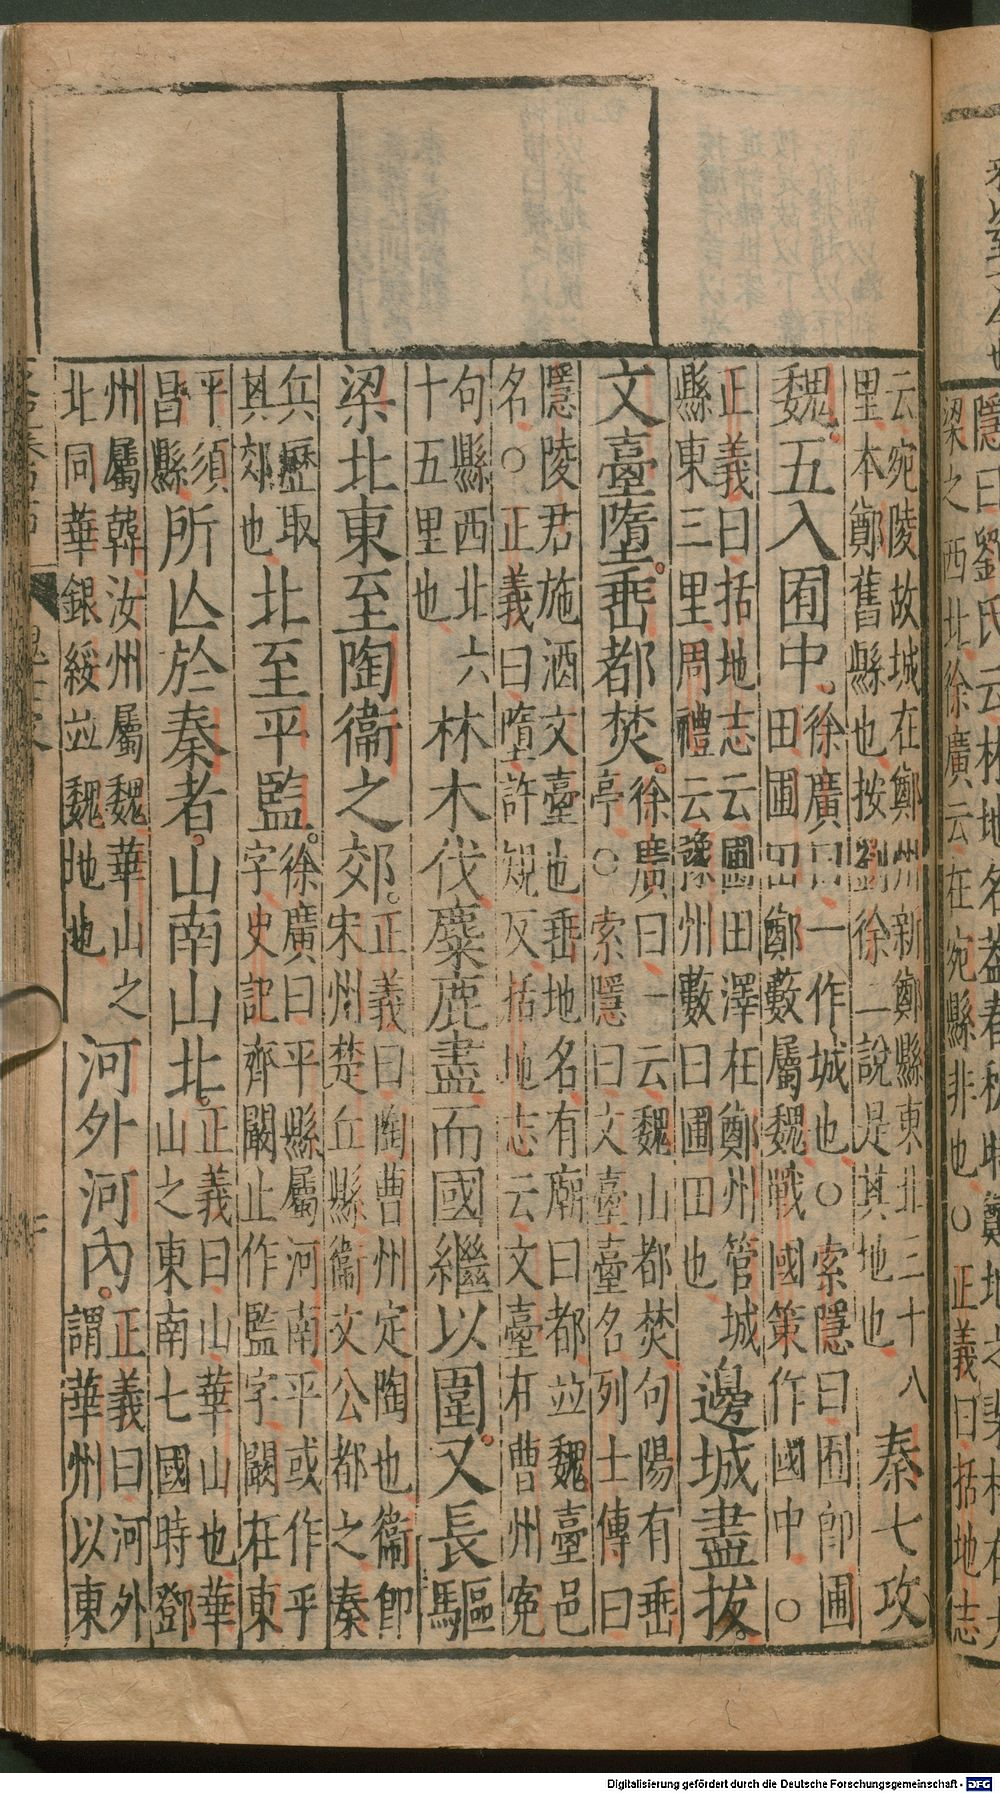 云宛陵故城在鄭州新鄭縣東北三十八
里本鄭舊縣也按劉徐二說是其地也
秦七攻
魏五入囿中
徐廣曰一作城也○索隱曰囿即圃
田圃田鄭藪屬魏戰國策作國中○
正義曰括地志云圃田澤在鄭州管城
縣東三里周禮云豫州藪曰圃田也
邊城盡拔
文臺墮埀都焚
徐廣曰一云魏山都焚句陽有埀
亭○索隱曰文臺臺名列士傳曰
隱陵君施酒文臺也埀地名有廟曰都並魏臺邑
名○正義曰墮許規反括地志云文臺在曹州寃
句縣西北六
十五里也
林木伐麋鹿盡而國繼以圍又長驅
梁北東至陶衞之郊
正義曰陶曹州定陶也衞即
宋州楚丘縣衞文公都之秦
兵歷取
其郊也
北至平監
徐廣曰平縣屬河南平或作乎
字史記齊闞止作監字闞在東
平須
昌縣
所亾於秦者山南山北
正義曰山華山也華
山之東南七國時鄧
州屬韓汝州屬魏華山之
北同華銀綏並魏地也
河外河內
正義曰河外
謂華州以東
梁之西北徐廣云在宛縣非也○正義曰括地志
Digitalisierung gefördert durch die Deutsche Forschungsgemeinschaft - DFG